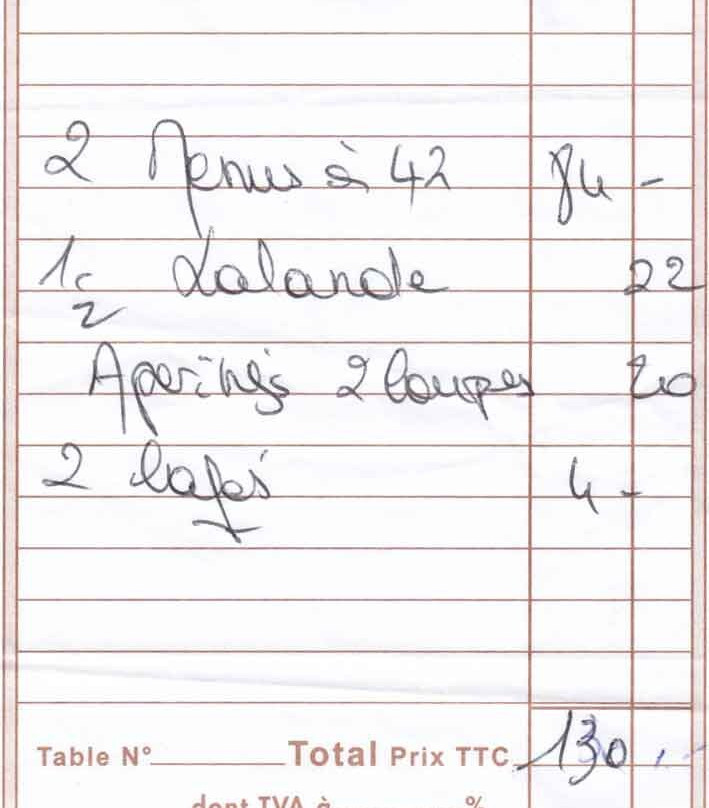 2 Menus à 42 84 -
1/2 Lalande 22
Aperitifs 2 Coupes 20
2 Cafés 4 -
Table N° Total Prix TTC 130 .-
dont TVA à %